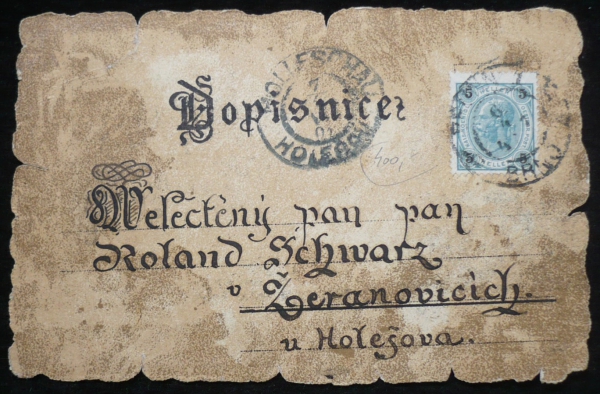 Dopisnice:
HOLLESCHAU
HOLEŠOV
400,-
Welectěný pan pan
Roland Schwarz
v Žeranovicích.
u Holešova.